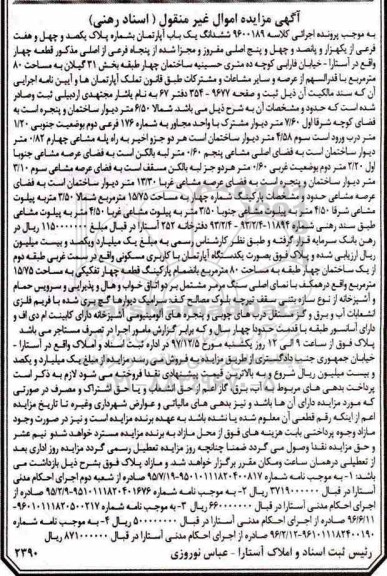 آگهی مزایده اموال غیر منقول ( اسناد رهنی )
به موجب پرونده اجرائی کلاسه ۹۶۰۰۱۸۹ ششدانگ یک باب آپارتمان بشماره پلاک یکصد و چهل و هفت
فرعی از یکهزار و پانصد و چهل و پنج اصلی مفروز و مجزا شده از پنجاه فرعی از اصلی مذکور قطعه چهار
واقع در آستارا - خیابان فارابی کوچه ده متری حسینیه ساختمان چهار طبقه بخش ۳۱ گیلان به مساحت ۸۰
مترمربع با قدرالسهم از عرصه و سایر مشاعات و مشترکات طبق قانون تملک آپارتمان ها و آیین نامه اجرایی
آن که سند مالکیت آن ذیل ثبت و صفحه ۹۶۷۷ - ۳۵۴ دفتر ۶۷ به نام یاشار مجتهدی اردبیلی ثبت وصادر
شده است که حدود و مشخصات آن به شرح ذیل می باشد شمالا ۶/۵۰ متر دیوار ساختمان و پنجره است به
فضای کوچه شرقا اول ۷/۶۰ متر دیوار مشترک با واحد مجاور به شماره ۱۷۶ فرعی دوم بوضعیت جنوبی ۱/۲۰
متر درب ورود است سوم ۴/۵۸ متر دیوار ساختمان است هر دو جزو اخیر به راه پله مشاعی چهارم ۰/۸۲ متر
دیوار ساختمان است به فضای اصلی مشاعی پنجم ۰/۶۰ متر لبه بالکن است به فضای عرصه مشاعی جنوبا
اول ۲/۲۰ متر دوم بوضعیت غربی ۰/۶۰ متر هردو جز لبه بالکن مسقف است به فضای عرصه مشاعی سوم ۳/۱۰
متر دیوار ساختمان و پنجره است به فضای عرصه مشاعی غربا ۱۳/۳۰ متر دیوار ساختمان است به فضای
عرصه مشاعی حدود و مشخصات پارکینگ شماره چهار به مساحت ۱۵/۷۵ مترمربع شمالا ۳/۵۰ متربه پیلوت
مشاعی شرقا ۴/۵۰ متر به پیلوت مشاعی جنوبا ۳/۵۰ متر به پیلوت مشاعی غربا ۴/۵۰ متر به پیلوت مشاعی
طبق سند رهنی شماره ۱۱۸۹۴-۹۳/۲/۴ دفترخانه ۲۵۲ آستارا در قبال مبلغ ۱۱۵۰۰۰۰۰۰۰ ریال در
رهن بانک سرمایه قرار گرفته و طبق نظر کارشناس رسمی به مبلغ یک میلیارد ویکصد و بیست میلیون
ریال ارزیابی شده و پلاک فوق بصورت یکدستگاه آپارتمان با کاربری مسکونی واقع در سمت غربی طبقه دوم
از یک ساختمان چهار طبقه به مساحت ۸۰ مترمربع بانضمام پارکینگ قطعه چهار تفکیکی به مساحت ۱۵/۷۵
مترمربع واقع درهمکف با نمای اصلی سنگ مرمر مشتمل بر دو اتاق خواب و هال و پذیرایی و سرویس حمام
و آشپزخانه از نوع سازه بتنی سقف تیرچه بلوک مصالح کف سرامیک دیوارها گچ بری شده با فریم فلزی
انشعابات آب و برق و گاز مستقل درب های چوبی و پنجره های آلومینیومی آشپزخانه دارای کابینت ام دی اف و
دارای آسانسور طبقه با قدمت حدودا چهار سال و که برابر گزارش مامور اجرا در تصرف مستاجر می باشد
پلاک فوق از ساعت ۹ الی ۱۲ روز یکشنبه مورخ ۹۷/۱۲/۵ در اداره ثبت اسناد و املاک واقع در آستارا -
خیابان جمهوری جنب دادگستری از طریق مزایده به فروش می رسد مزایده از مبلغ یک میلیارد و یکصد
و بیست میلیون ریال شروع و به بالاترین قیمت پیشنهادی نقدا فروخته می شود لازم به ذکر است
پرداخت بدهی های مربوط به آب، برق گاز اعم از حق انشعاب و یا حق اشتراک و مصرف در صورتی
که مورد مزایده دارای آن ها باشد و نیز بدهی های مالیاتی و عوارض شهرداری وغیره تا تاریخ مزایده
اعم از اینکه رقم قطعی آن معلوم شده یا نشده باشد به عهده برنده مزایده است و نیز در صورت وجود
مازاد وجوه پرداختی بابت هزینه های فوق از محل مازاد به برنده مزایده مسترد خواهد شدو نیم عشر
و حق مزایده نقدا وصول می گردد ضمنا چنانچه روز مزایده تعطیل رسمی گردد مزایده روز اداری بعد
از تعطیلی درهمان ساعت ومکان مقرر برگزار خواهد شد و مازاد پلاک فوق بشرح ذیل بازداشت می
باشد: ۱- به موجب نامه شماره ۹۵۰۱۰۱۱۱۸۲۰۴۰۰۸۱۷-۹۵/۷/۱۹ صادره از شعبه دوم اجرای احکام مدنی
آستارا در قبال ۳۷۱۹۰۰۰۰۰۰ ریال ۲- به موجب نامه شماره ۹۵۰۱۰۱۱۱۸۲۰۴۰۱۶۷۶-۹۵/۲/۹ صادره از
اجرای احکام مدنی آستارا در قبال ۶۶۰۰۰۰۰۰۰ ریال ۳- به موجب نامه شماره ۹۶۰۱۰۱۱۱۸۲۰۵۰۰۲۱۷-
۹۶/۶/۱۱ صادره از اجرای احکام مدنی آستارا در قبال ۵۰۰۰۰۰۰۰۰ ریال ۴- به موجب نامه شماره
۹۶۰۱۰۱۱۱۸۲۴۰۰۱۹۰-۹۶/۲/۱۲ صادره از اجرای احکام مدنی آستارا در قبال ۸۷۱۰۰۰۰۰۰ ریال
رئیس ثبت اسناد و املاک آستارا - عباس نوروزی
۲۳۹۰